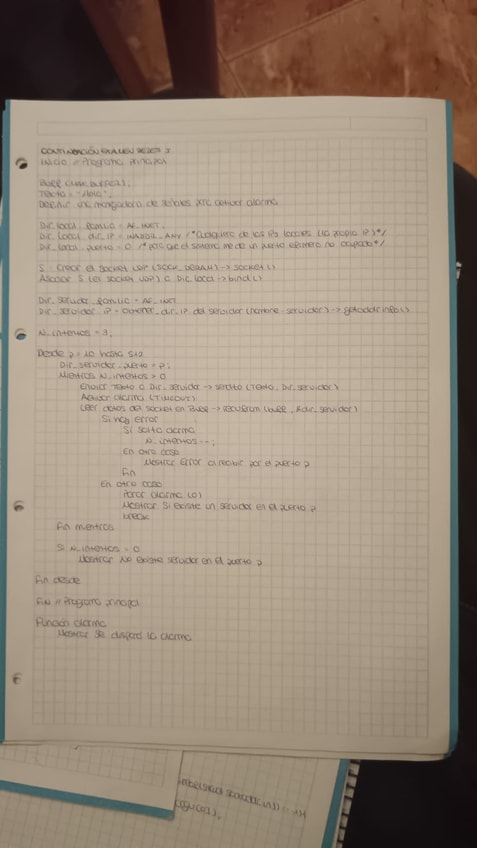 CONTINUACIÓN EXAMEN REDES I
INICIO // Programa principal
Buff [
Texto = "Hola";
Definir una manejadora de señales para activar alarma
Dir_local_familia = AF_INET
Dir_local_dir_IP = INADDR_ANY /*Cualquiera de las IPs locales (la propia IP)*/
Dir_local_puerto = 0 /* para que el sistema me de un puerto efímero no ocupado*/
S = Crear el socket UDP (SOCK_DGRAM) -> socket()
Asociar S (el socket UDP) a Dir_local -> bind()
Dir_servidor_familia = AF_INET
Dir_servidor_IP = Obtener_dir_IP del servidor (nombre_servidor) -> getaddrinfo()
N_intentos = 3;
Desde p = 10 hasta 512
Dir_servidor_puerto = p;
Mientras N_intentos > 0
Enviar Texto a Dir_servidor -> sendto (Texto, Dir_servidor)
Activar alarma (TIMEOUT)
Leer datos del socket en Buff -> recvfrom (buff, &dir_servidor)
Si hay error
Si salta alarma
N_intentos--;
En otro caso
Mostrar Error al recibir por el puerto p
Fin
En otro caso
Parar alarma (0)
Mostrar Si existe un servidor en el puerto p
break
Fin mientras
Si N_intentos = 0
Mostrar No existe servidor en el puerto p
Fin desde
FIN // Programa principal
Función alarma
Mostrar Se disparó la alarma